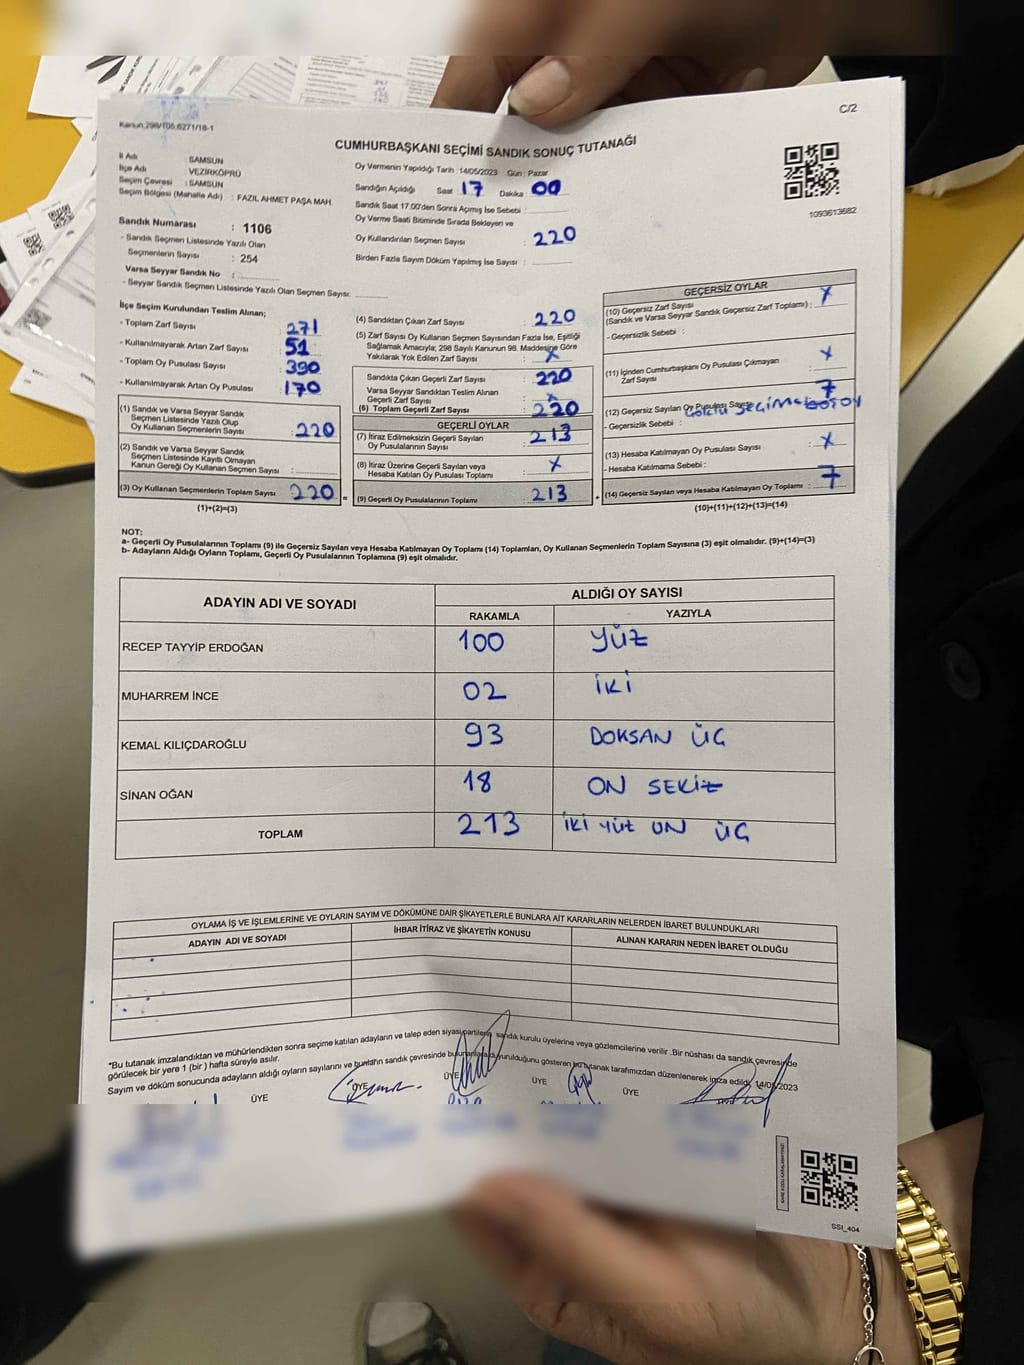 C/2
Kanun:298/105.6271/18-1
CUMHURBAŞKANI SEÇİMİ SANDIK SONUÇ TUTANAĞI
İl Adı : SAMSUN
İlçe Adı : VEZİRKÖPRÜ
Seçim Çevresi : SAMSUN
Seçim Bölgesi (Mahalle Adı) : FAZIL AHMET PAŞA MAH.
Sandık Numarası : 1106
- Sandık Seçmen Listesinde Yazılı Olan
Seçmenlerin Sayısı : 254
Varsa Seyyar Sandık No :
- Seyyar Sandık Seçmen Listesinde Yazılı Olan Seçmen Sayısı:
Oy Vermenin Yapıldığı Tarih :14/05/2023 Gün : Pazar
Sandığın Açıldığı Saat : 17 Dakika : 00
Sandık Saat 17.00'den Sonra Açmış İse Sebebi :
Oy Verme Saati Bitiminde Sırada Bekleyen ve
Oy Kullandırılan Seçmen Sayısı : 220
Birden Fazla Sayım Döküm Yapılmış İse Sayısı :
1093613682
İlçe Seçim Kurulundan Teslim Alınan;
- Toplam Zarf Sayısı : 271
- Kullanılmayarak Artan Zarf Sayısı : 51
- Toplam Oy Pusulası Sayısı : 390
- Kullanılmayarak Artan Oy Pusulası : 170
(1) Sandık ve Varsa Seyyar Sandık
Seçmen Listesinde Yazılı Olup
Oy Kullanan Seçmenlerin Sayısı : 220
(2) Sandık ve Varsa Seyyar Sandık
Seçmen Listesinde Kayıtlı Olmayan
Kanun Gereği Oy Kullanan Seçmen Sayısı :
(3) Oy Kullanan Seçmenlerin Toplam Sayısı : 220 =
(1)+(2)=(3)
(4) Sandıktan Çıkan Zarf Sayısı : 220
(5) Zarf Sayısı Oy Kullanan Seçmen Sayısından Fazla İse, Eşitliği
Sağlamak Amacıyla; 298 Sayılı Kanunun 98. Maddesine Göre
Yakılarak Yok Edilen Zarf Sayısı : X
Sandıkta Çıkan Geçerli Zarf Sayısı : 220
Varsa Seyyar Sandıktan Teslim Alınan
Geçerli Zarf Sayısı : X
(6) Toplam Geçerli Zarf Sayısı : 220
GEÇERLİ OYLAR
(7) İtiraz Edilmeksizin Geçerli Sayılan
Oy Pusulalarının Sayısı : 213
(8) İtiraz Üzerine Geçerli Sayılan veya
Hesaba Katılan Oy Pusulası Toplamı : X
(9) Geçerli Oy Pusulalarının Toplamı : 213 +
GEÇERSİZ OYLAR
(10) Geçersiz Zarf Sayısı
(Sandık ve Varsa Seyyar Sandık Geçersiz Zarf Toplamı) : X
- Geçersizlik Sebebi :
(11) İçinden Cumhurbaşkanı Oy Pusulası Çıkmayan
Zarf Sayısı : X
(12) Geçersiz Sayılan Oy Pusulası Sayısı : 7
- Geçersizlik Sebebi :
(13) Hesaba Katılmayan Oy Pusulası Sayısı : X
- Hesaba Katılmama Sebebi :
(14) Geçersiz Sayılan veya Hesaba Katılmayan Oy Toplamı : 7
(10)+(11)+(12)+(13)=(14)
NOT:
a- Geçerli Oy Pusulalarının Toplamı (9) ile Geçersiz Sayılan veya Hesaba Katılmayan Oy Toplamı (14) Toplamları, Oy Kullanan Seçmenlerin Toplam Sayısına (3) eşit olmalıdır. (9)+(14)=(3)
b- Adayların Aldığı Oyların Toplamı, Geçerli Oy Pusulalarının Toplamına (9) eşit olmalıdır.
ADAYIN ADI VE SOYADI ALDIĞI OY SAYISI
RAKAMLA YAZIYLA
RECEP TAYYİP ERDOĞAN 100 YÜZ
MUHARREM İNCE 02 İKİ
KEMAL KILIÇDAROĞLU 93 DOKSAN ÜÇ
SİNAN OĞAN 18 ON SEKİZ
TOPLAM 213 İKİ YÜZ ON ÜÇ
OYLAMA İŞ VE İŞLEMLERİNE VE OYLARIN SAYIM VE DÖKÜMÜNE DAİR ŞİKAYETLERLE BUNLARA AİT KARARLARIN NELERDEN İBARET BULUNDUKLARI
ADAYIN ADI VE SOYADI İHBAR İTİRAZ VE ŞİKAYETİN KONUSU ALINAN KARARIN NEDEN İBARET OLDUĞU
*Bu tutanak imzalandıktan ve mühürlendikten sonra seçime katılan adayların ve talep eden siyasi partilerin sandık kurulu üyelerine veya gözlemcilerine verilir .Bir nüshası da sandık çevresinde
görülecek bir yere 1 (bir ) hafta süreyle asılır.
Sayım ve döküm sonucunda adayların aldığı oyların sayılarını ve bunların sandık çevresinde bulunanlara duyurulduğunu gösteren bu tutanak tarafımızdan düzenlenerek imza edildi. 14/05/2023
ÜYE ÜYE ÜYE ÜYE ÜYE
SSI_404